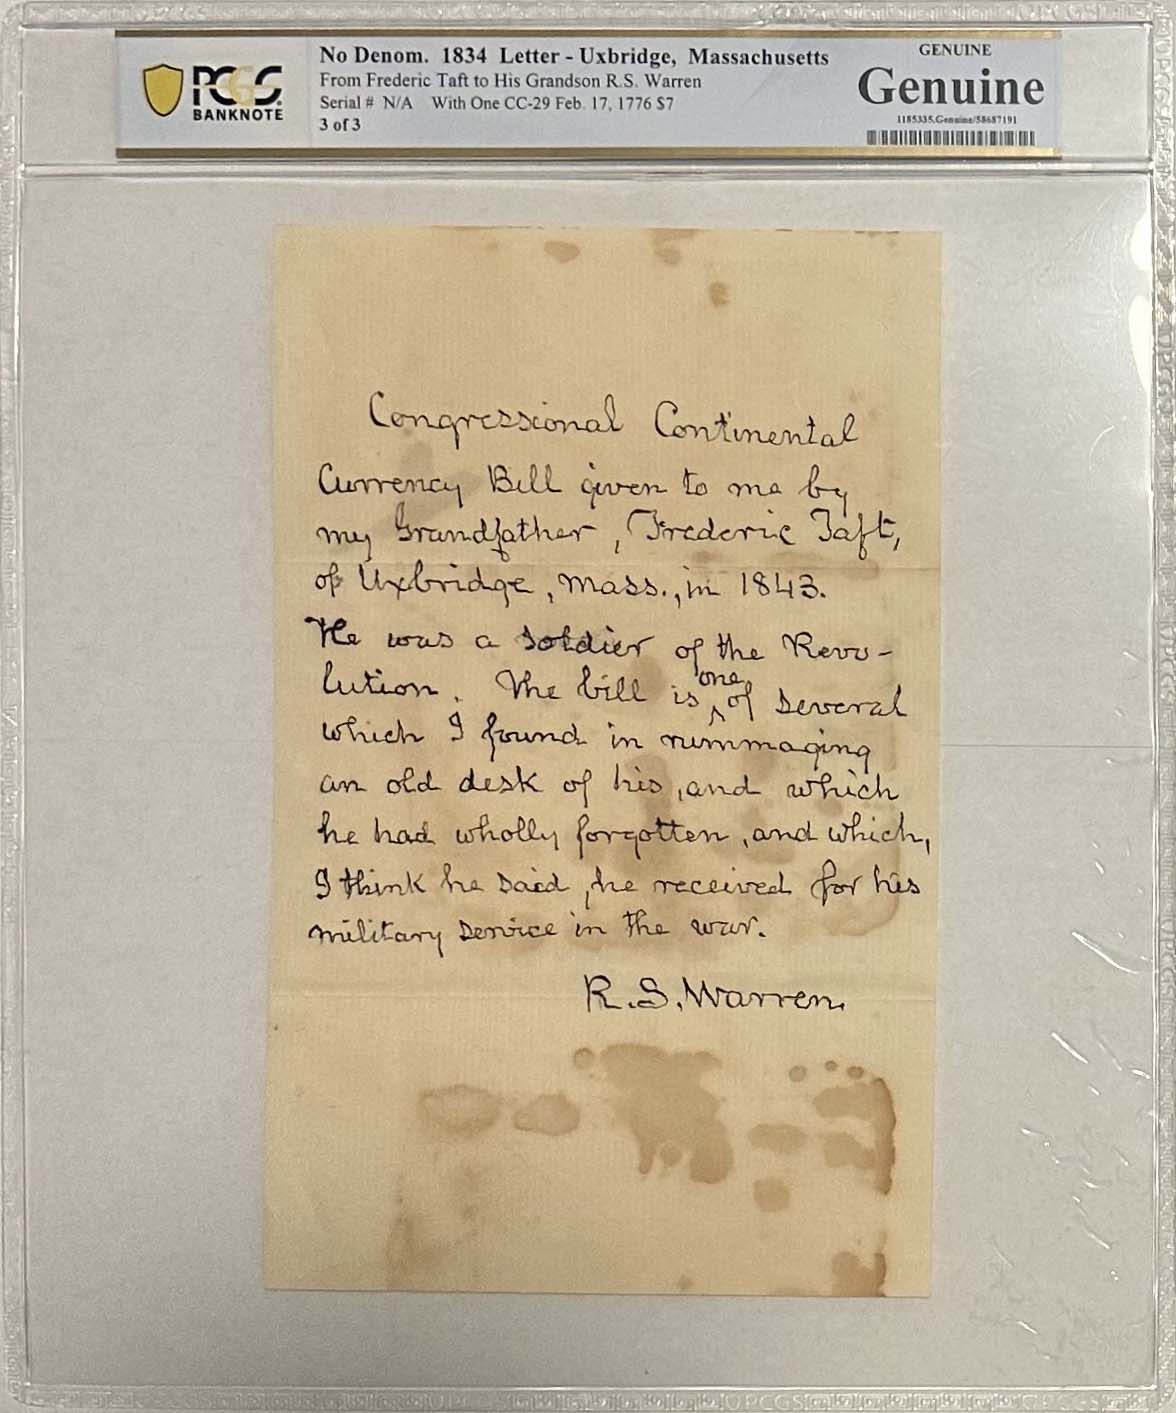 PCGS BANKNOTE
No Denom. 1834 Letter - Uxbridge, Massachusetts
From Frederic Taft to His Grandson R.S. Warren
Serial # N/A With One CC-29 Feb. 17, 1776 $7
3 of 3
GENUINE
Genuine
1185335.Genuine/58687191
Congressional Continental
Currency Bill given to me by
my Grandfather, Frederic Taft,
of Uxbridge, Mass., in 1843.
He was a soldier of the Revo-
lution. The bill is one of several
which I found in rummaging
an old desk of his, and which
he had wholly forgotten, and which,
I think he said, he received for his
military service in the war.
R.S. Warren.